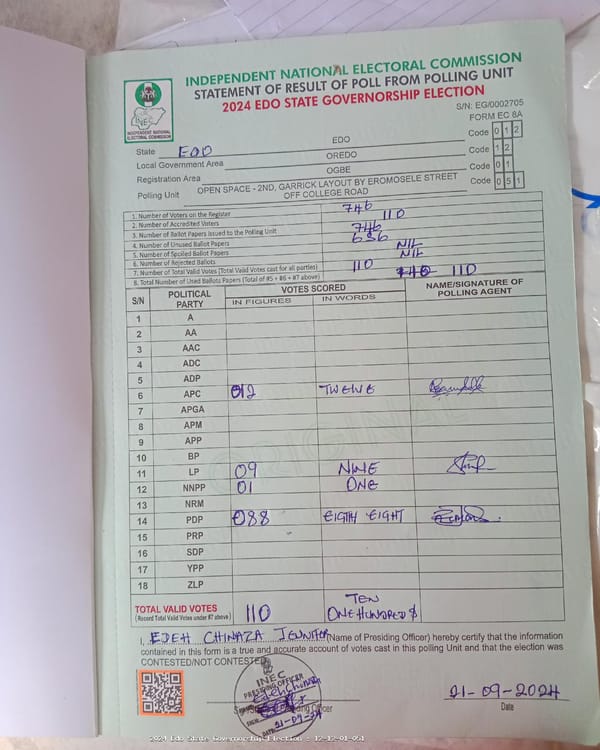 INDEPENDENT NATIONAL ELECTORAL COMMISSION
STATEMENT OF RESULT OF POLL FROM POLLING UNIT
2024 EDO STATE GOVERNORSHIP ELECTION
INEC
INDEPENDENT NATIONAL ELECTORAL COMMISSION
S/N: EG/0002705
FORM EC 8A
State EDO EDO Code 0 1 2
Local Government Area OREDO Code 1 2
Registration Area OGBE Code 0 1
Polling Unit OPEN SPACE - 2ND, GARRICK LAYOUT BY EROMOSELE STREET OFF COLLEGE ROAD Code 0 5 1
1. Number of Voters on the Register 746
2. Number of Accredited Voters 110
3. Number of Ballot Papers Issued to the Polling Unit 746
4. Number of Unused Ballot Papers 636
5. Number of Spoiled Ballot Papers NIL
6. Number of Rejected Ballots NIL
7. Number of Total Valid Votes (Total Valid Votes cast for all parties) 110
8. Total Number of Used Ballots Papers (Total of #5 + #6 + #7 above) 110
S/N POLITICAL PARTY VOTES SCORED NAME/SIGNATURE OF POLLING AGENT
IN FIGURES IN WORDS
1 A
2 AA
3 AAC
4 ADC
5 ADP
6 APC 012 TWEVE
7 APGA
8 APM
9 APP
10 BP
11 LP 09 NINE
12 NNPP 01 ONE
13 NRM
14 PDP 088 EIGTH EIGHT
15 PRP
16 SDP
17 YPP
18 ZLP
ORIGINAL
TOTAL VALID VOTES 110 ONE HUNDRED & TEN
(Record Total Valid Votes under #7 above)
I, EDEH CHINAZA JENNIFER (Name of Presiding Officer) hereby certify that the information
contained in this form is a true and accurate account of votes cast in this polling Unit and that the election was
CONTESTED/NOT CONTESTED
INEC
PRESIDING OFFICER
Edeh Chinaza
21-09-24
21-09-2024
Date
2024 Edo State Governorship Election - 12-12-01-051